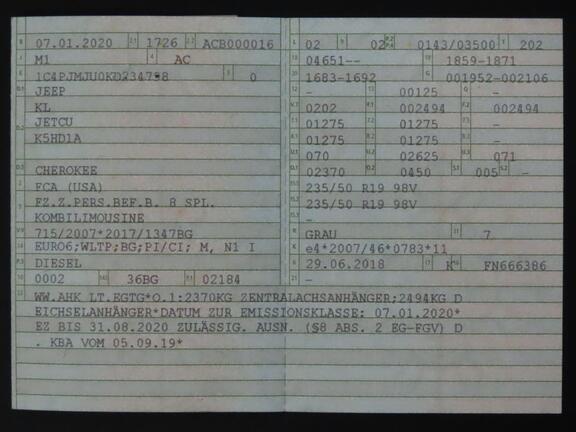 B 07.01.2020 2.1 1726 2.2 ACB000016
J M1 4 AC
E 1C4PJMJU0KD234798 3 0
D.1 JEEP
KL
JETCU
D.2 K5HD1A
D.3 CHEROKEE
2 FCA (USA)
5 FZ.Z.PERS.BEF.B. 8 SPL.
KOMBILIMOUSINE
V.9 715/2007*2017/1347BG
14 EURO6;WLTP;BG;PI/CI; M, N1 I
P.3 DIESEL
10 0002 14.1 36BG P.1 02184
L 02 9 02 P.2 P.4 0143/03500 T 202
18 04651-- 19 1859-1871
20 1683-1692 G 001952-002106
12 - 13 00125 Q -
V.7 0202 F.1 002494 F.2 002494
7.1 01275 7.2 01275 7.3 -
8.1 01275 8.2 01275 8.3 -
U.1 070 U.2 02625 U.3 071
O.1 02370 O.2 0450 S.1 005 S.2 -
15.1 235/50 R19 98V
15.2 235/50 R19 98V
15.3 -
R GRAU 11 7
K e4*2007/46*0783*11
6 29.06.2018 17 K 16 FN666386
21 -
22 WW.AHK LT.EGTG*O.1:2370KG ZENTRALACHSANHÄNGER;2494KG D
EICHSELANHÄNGER*DATUM ZUR EMISSIONSKLASSE: 07.01.2020*
EZ BIS 31.08.2020 ZULÄSSIG. AUSN. (§8 ABS. 2 EG-FGV) D
. KBA VOM 05.09.19*